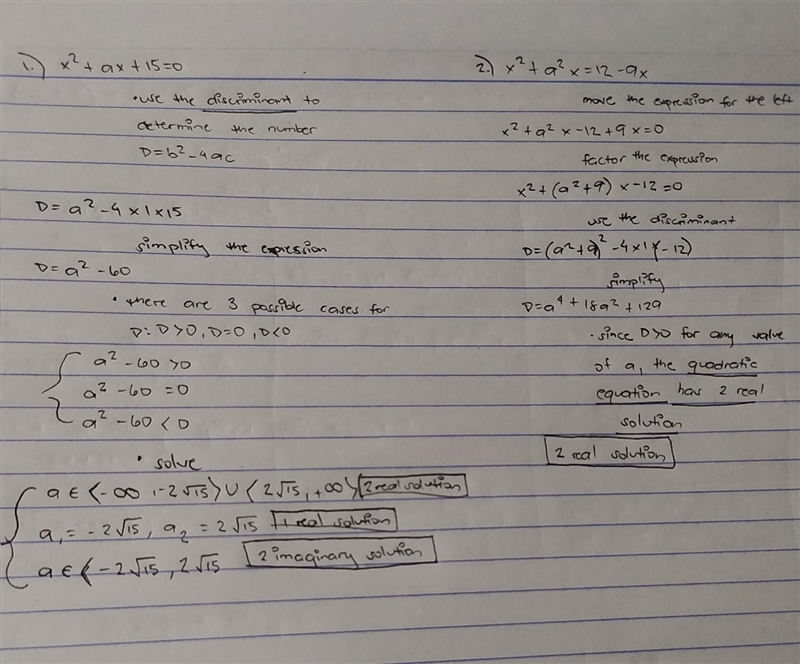 1.) x² + ax + 15 = 0
• use the discriminant to
determine the number
D = b² - 4ac
D = a² - 4 × 1 × 15
simplify the expression
D = a² - 60
• there are 3 possible cases for
D: D > 0, D = 0, D < 0
{ a² - 60 > 0
a² - 60 = 0
a² - 60 < 0
• solve
{ a ∈ ⟨-∞, -2√15⟩ ∪ ⟨2√15, +∞⟩ 2 real solution
a₁ = -2√15, a₂ = 2√15 1 real solution
a ∈ ⟨-2√15, 2√15 2 imaginary solution
2.) x² + a²x = 12 - 9x
move the expression for the left
x² + a²x - 12 + 9x = 0
factor the expression
x² + (a² + 9) x - 12 = 0
use the discriminant
D = (a² + 9)² - 4 × 1 (-12)
simplify
D = a⁴ + 18a² + 129
• since D > 0 for any value
of a, the quadratic
equation has 2 real
solution
2 real solution